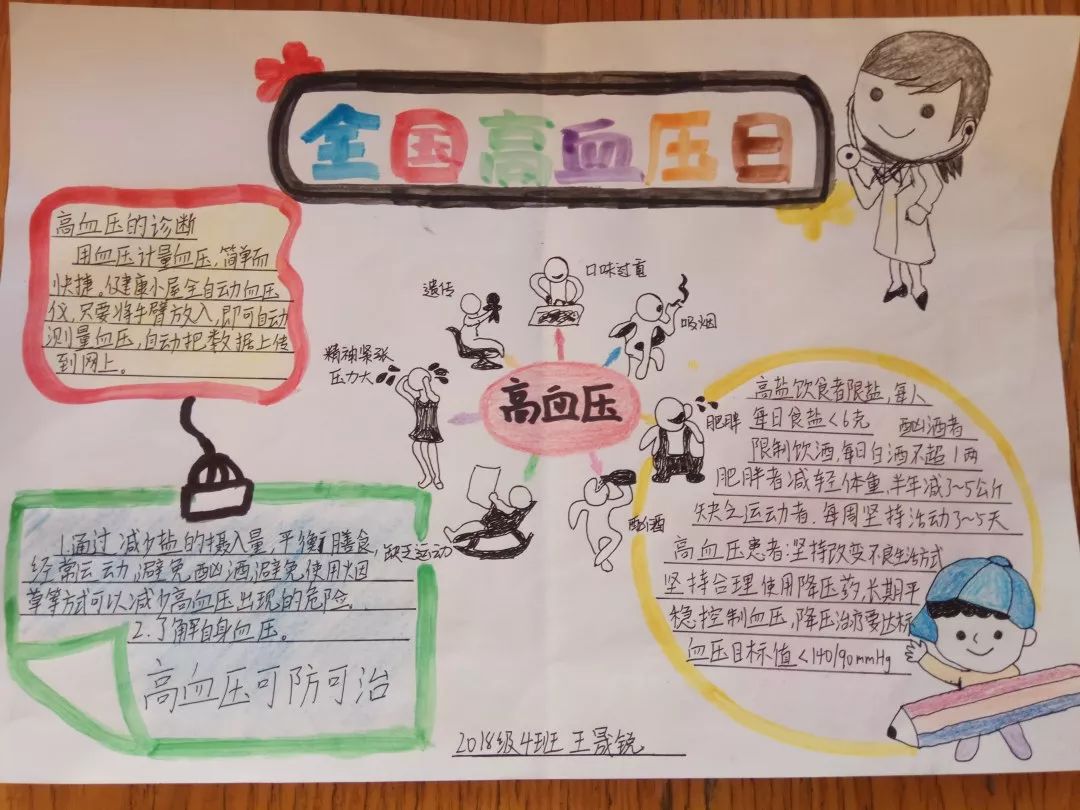 全国高血压日
高血压的诊断
用血压计量血压,简单而
快捷。健康小屋全自动血压
仪,只要将手臂放入,即可自动
测量血压,自动把数据上传
到网上。
遗传
口味过重
吸烟
精神紧张
压力大
高血压
肥胖
酗酒
缺乏运动
高盐饮食者限盐,每人
每日食盐<6克 酗酒者
限制饮酒,每日白酒不超1两
肥胖者减轻体重,半年减3~5公斤
缺乏运动者,每周坚持活动3~5天
高血压患者:坚持改变不良生活方式
坚持合理使用降压药,长期平
稳控制血压,降压治疗要达标
血压目标值<140/90mmHg
1.通过减少盐的摄入量,平衡膳食,
经常运动,避免酗酒,避免使用烟
草等方式可以减少高血压出现的危险。
2.了解自身血压。
高血压可防可治
2018级4班 王晟锐